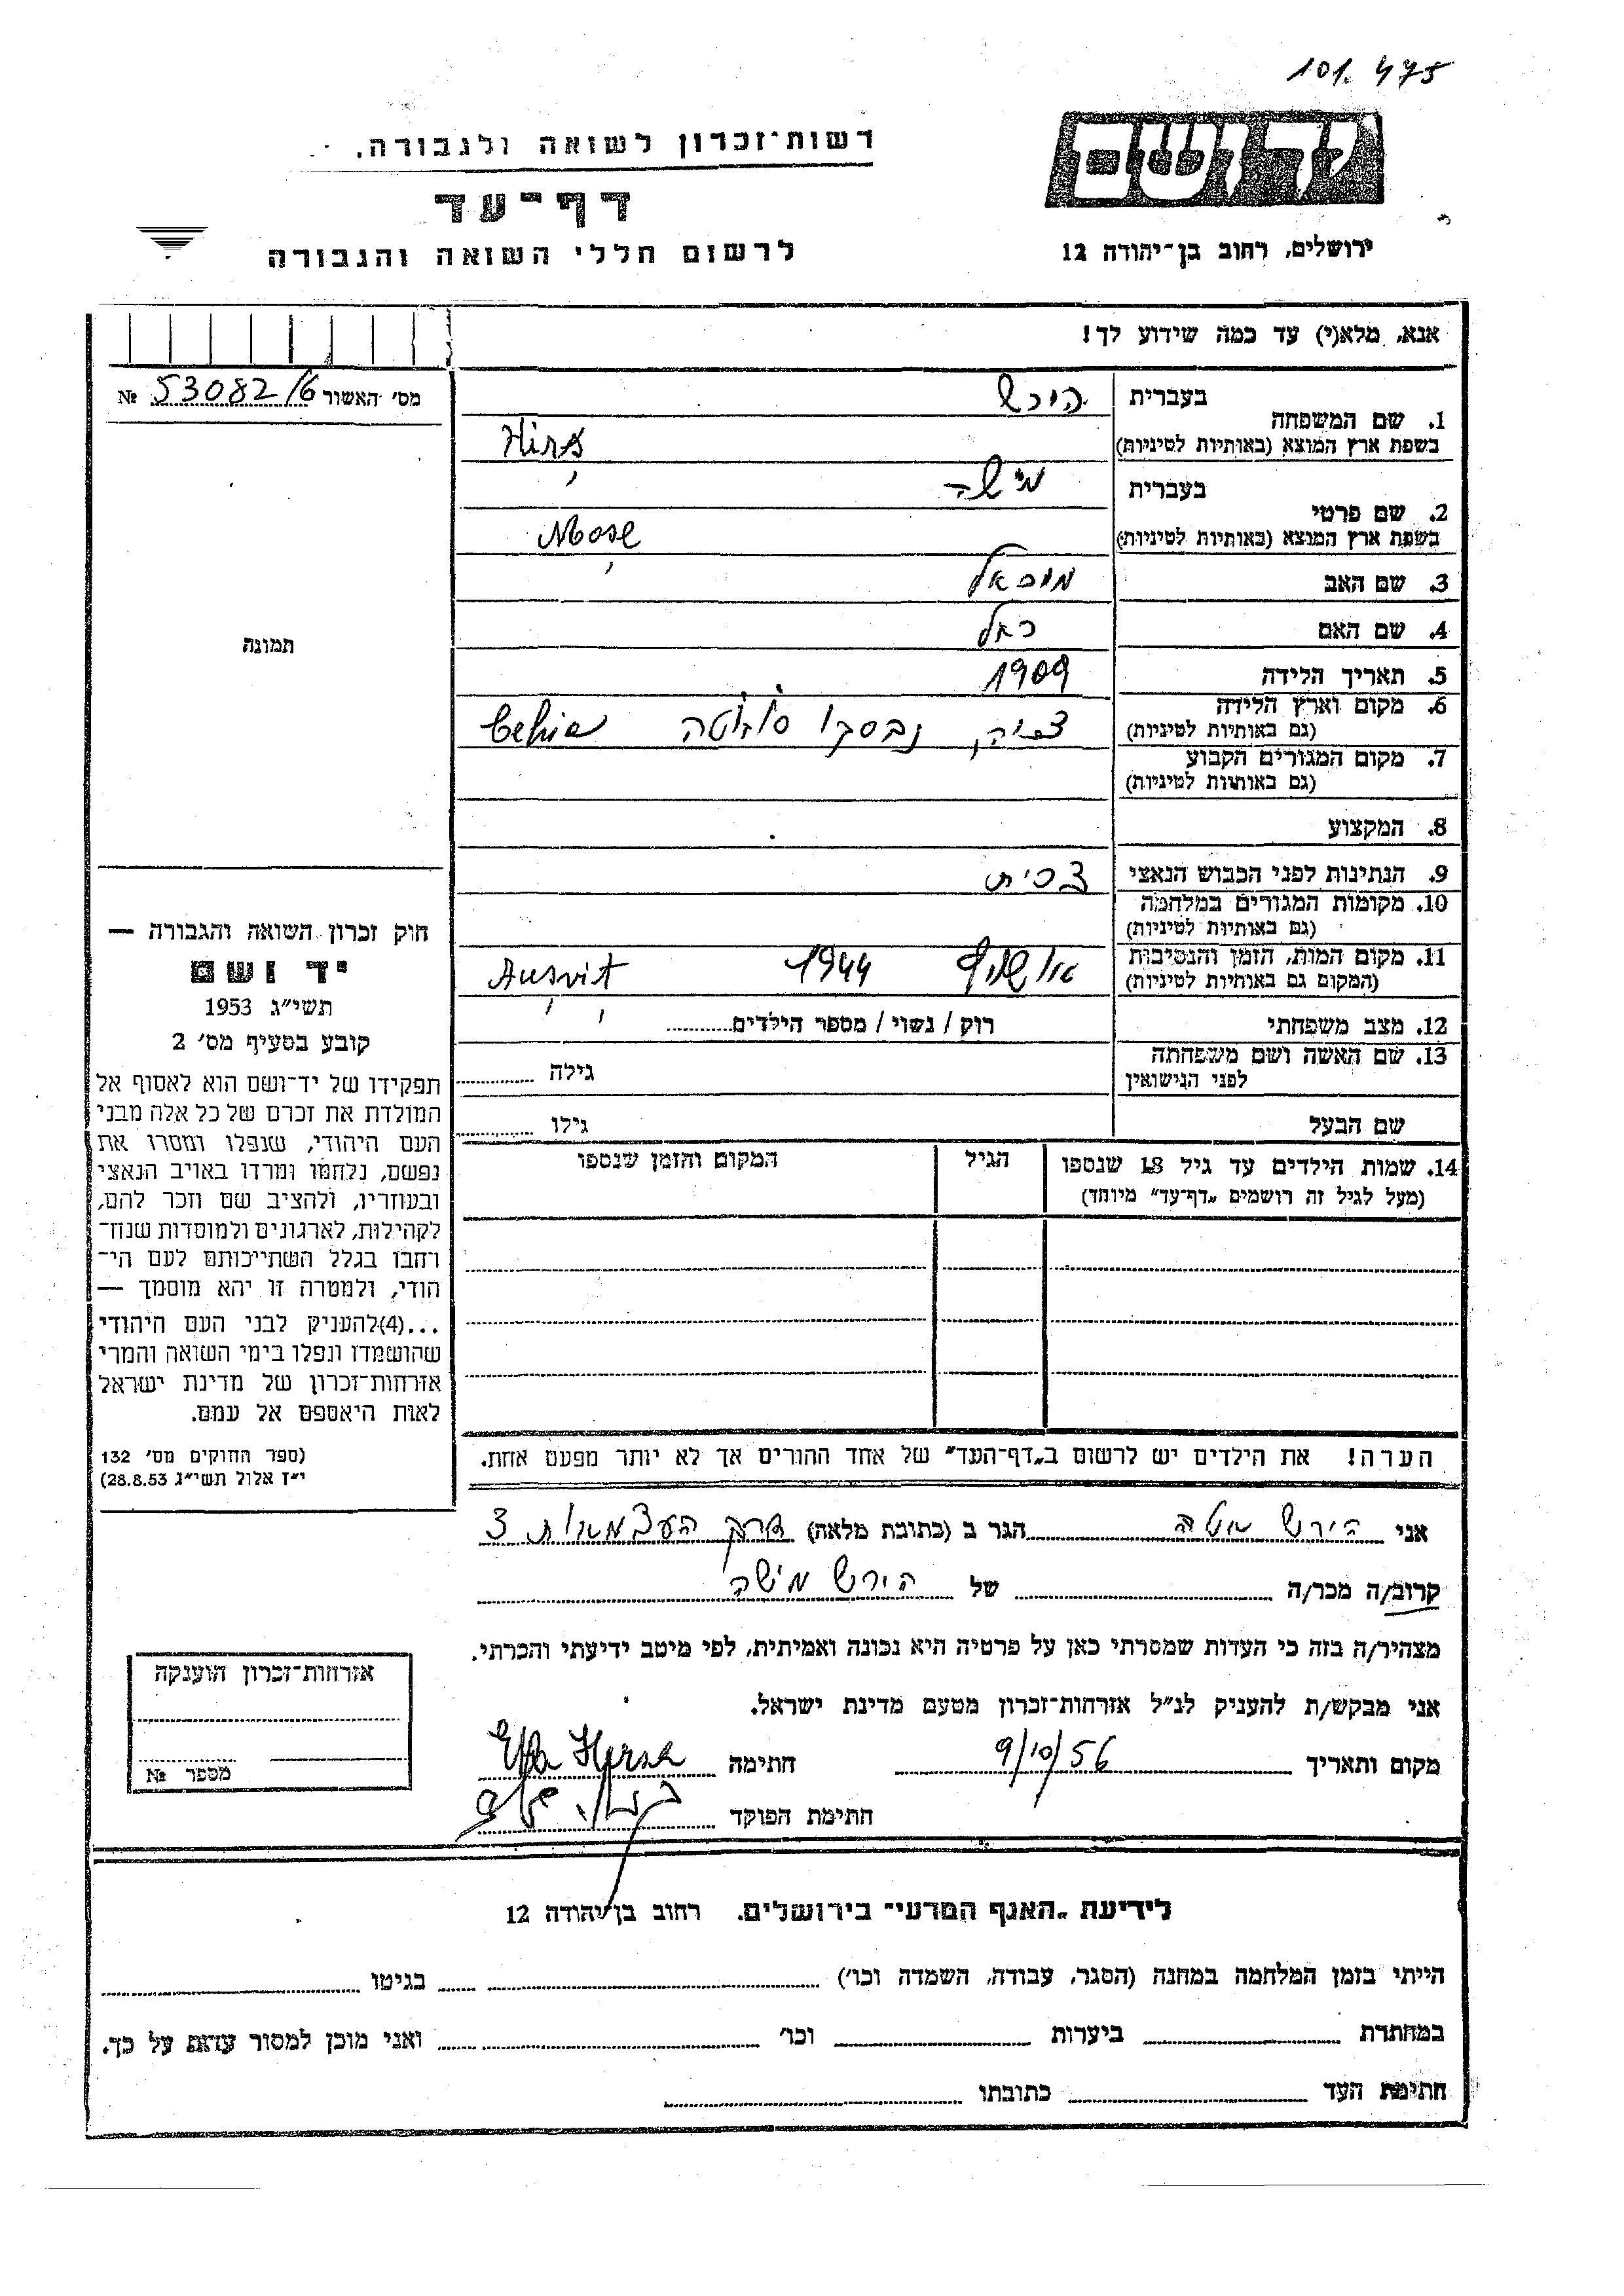 101.475
יד ושם
רשות־זכרון לשואה ולגבורה.
דף־עד
ירושלים, רחוב בן־יהודה 12
לרשום חללי השואה והגבורה
אנא, מלא(י) עד כמה שידוע לך!
מס׳ האשור 53082/6 №
בעברית הירש
1. שם המשפחה
בשפת ארץ המוצא (באותיות לטיניות) Hirş
בעברית
2. שם פרטי
בשפת ארץ המוצא (באותיות לטיניות) Moşe
3. שם האב
4. שם האם רחל
5. תאריך הלידה 1909
6. מקום וארץ הלידה
(גם באותיות לטיניות) Cehia
7. מקום המגורים הקבוע
(גם באותיות לטיניות)
8. המקצוע
9. הנתינות לפני הכבוש הנאצי צכית
10. מקומות המגורים במלחמה
(גם באותיות לטיניות)
11. מקום המות, הזמן והנסיבות
(המקום גם באותיות לטיניות) 1944 Auşviţ
12. מצב משפחתי רוק / נשוי / מספר הילדים
13. שם האשה ושם משפחתה
לפני הנישואין גילה
שם הבעל גילו
14. שמות הילדים עד גיל 18 שנספו
(מעל לגיל זה רושמים „דף־עד״ מיוחד)
הגיל
המקום והזמן שנספו
תמונה
חוק זכרון השואה והגבורה —
יד ושם
תשי״ג 1953
קובע בסעיף מס׳ 2
תפקידו של יד־ושם הוא לאסוף אל
המולדת את זכרם של כל אלה מבני
העם היהודי, שנפלו ומסרו את
נפשם, נלחמו ומרדו באויב הנאצי
ובעוזריו, ולהציב שם וזכר להם,
לקהילות, לארגונים ולמוסדות שנח־
רחבו בגלל השתייכותם לעם הי־
הודי, ולמטרה זו יהא מוסמך —
...(4)להעניק לבני העם היהודי
שהושמדו ונפלו בימי השואה והמרי
אזרחות־זכרון של מדינת ישראל
לאות היאספם אל עמם.
(ספר החוקים מס׳ 132
י״ז אלול תשי״ג 28.8.53)
הערה! את הילדים יש לרשום ב„דף־העד״ של אחד ההורים אך לא יותר מפעם אחת.
אני הירש אטה הגר ב (כתובת מלאה) דרך העצמאות 3
קרוב/ה מכר/ה של הירש משה
מצהיר/ה בזה כי העדות שמסרתי כאן על פרטיה היא נכונה ואמיתית, לפי מיטב ידיעתי והכרתי.
אני מבקש/ת להעניק לנ״ל אזרחות־זכרון מטעם מדינת ישראל.
מקום ותאריך 9/10/56 חתימה
חתימת הפוקד
אזרחות־זכרון הוענקה
מספר №
לידיעת „האגף המדעי״ בירושלים. רחוב בן־יהודה 12
הייתי בזמן המלחמה במחנה (הסגר, עבודה, השמדה וכו׳) בגיטו
במחתרת ביערות וכו׳ ואני מוכן למסור עדות על כך.
חתימת העד כתובתו